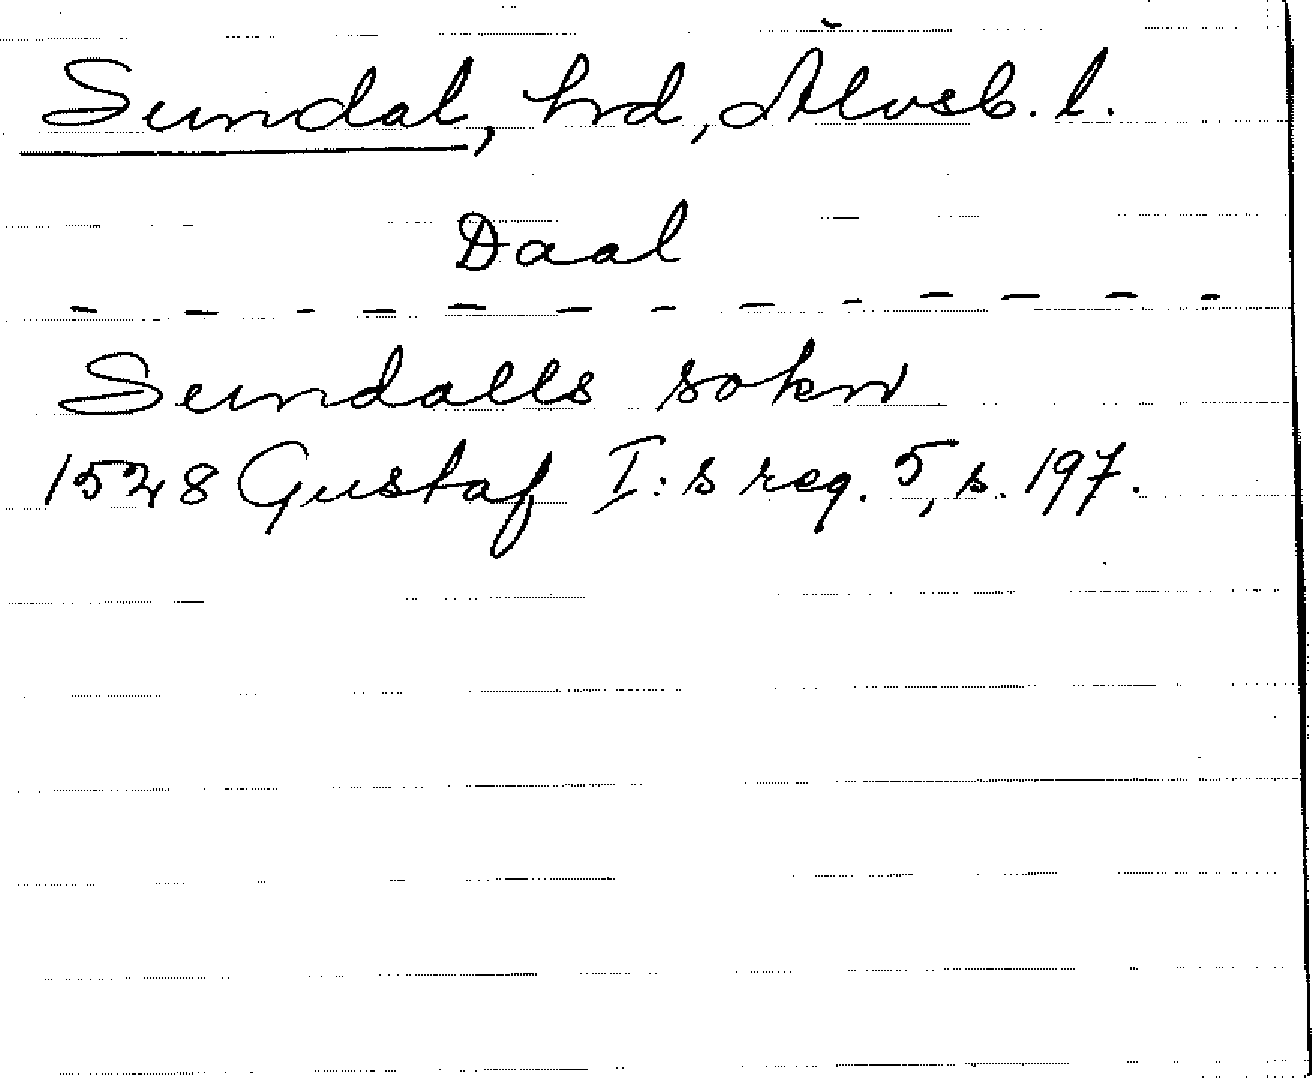 Sundal, hrd, Älvsb. l.
Daal
Sundalls sokn
1528 Gustaf I:s reg. 5, s. 197.